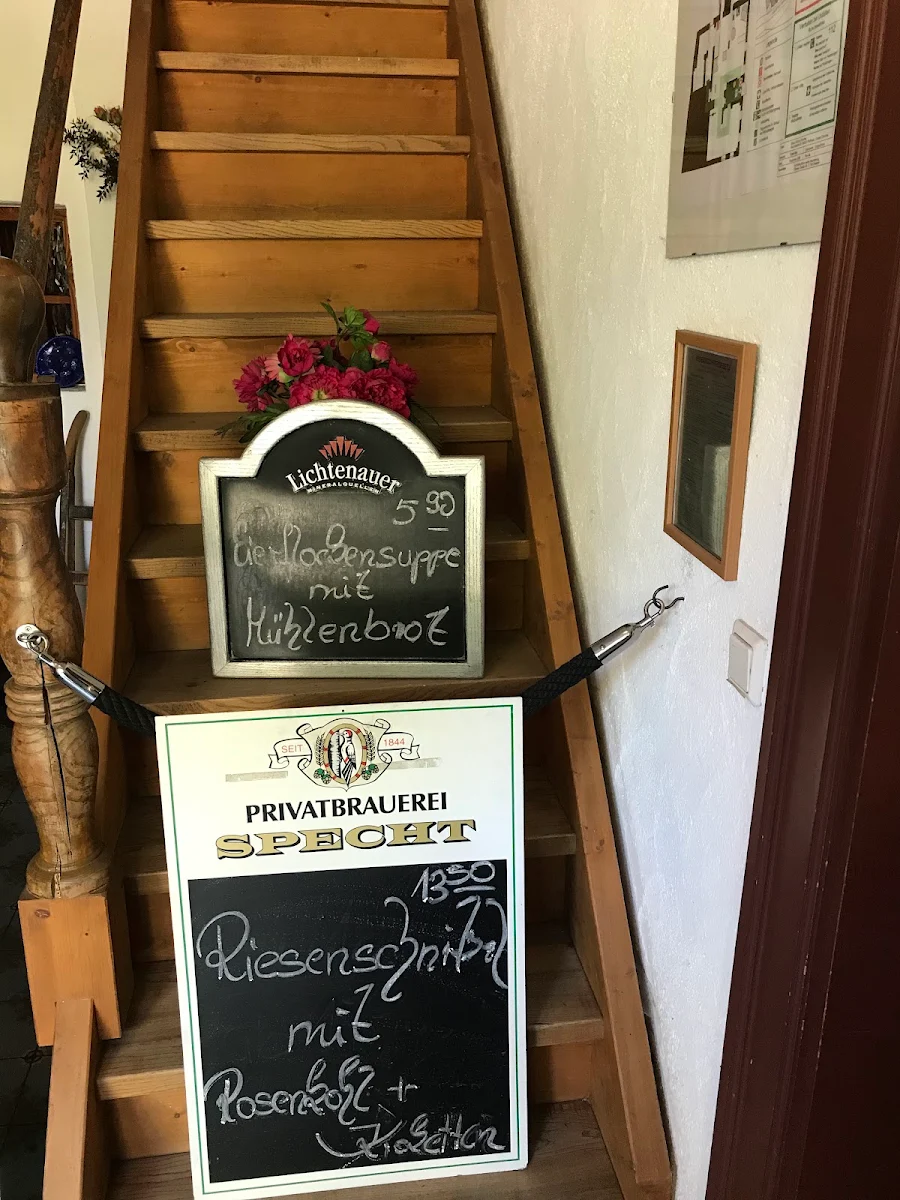 Lichtenauer
MINERALQUELLEN
5 90
Eierflockensuppe
mit
Mühlenbrot
SEIT 1844
PRIVATBRAUEREI
SPECHT
13 50
Riesenschnitzel
mit
Rosenkohl +
Kroketten